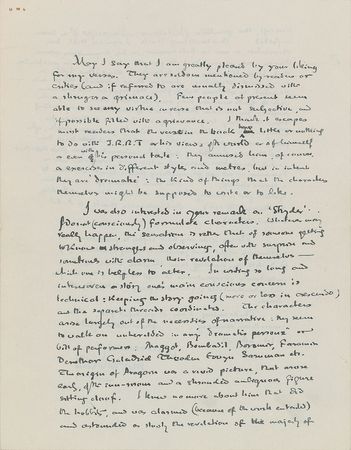 May I say that I am greatly pleased by your liking
for my verses. They are seldom mentioned by readers or
critics (and if referred to are usually dismissed with
a shrug or a grimace). Few people at present seem
able to see any virtue in verse that is not subjective, and
if possible filled with a grievance. I think it escapes
most readers that the verses in the book have little or nothing
to do with J.R.R.T or his views of the world or of himself
or even with his personal taste: they amused him, of course,
as exercises in different styles and metres, but in intent
they are 'dramatic': the kind of things that the characters
themselves might be supposed to write or to like.
I was also interested in your remark on 'Strider'.
I do not (consciously) formulate characters. Whatever may
really happen, the sensation is rather that of someone getting
to know strangers and observing, often with surprise and
sometimes with alarm their revelation of themselves —
which one is helpless to alter. In writing so long and
interwoven a story one's main conscious concern is
technical: keeping the story going (more or less in crescendo)
and the separate threads coordinated. The characters
arise largely out of the necessities of narrative: they seem
to walk on unheralded in any 'dramatis personae' or
bill of performers: Maggot, Bombadil, Boromir, Faramir
Denethor Galadriel Theoden Eowyn Saruman etc.
The origin of Aragorn was a vivid picture, that arose
early, of the inn-room and a shrouded ambiguous figure
sitting aloof. I knew no more about him than did
the hobbits, and was alarmed (because of the work entailed)
and astounded as slowly the revelation of the majesty of